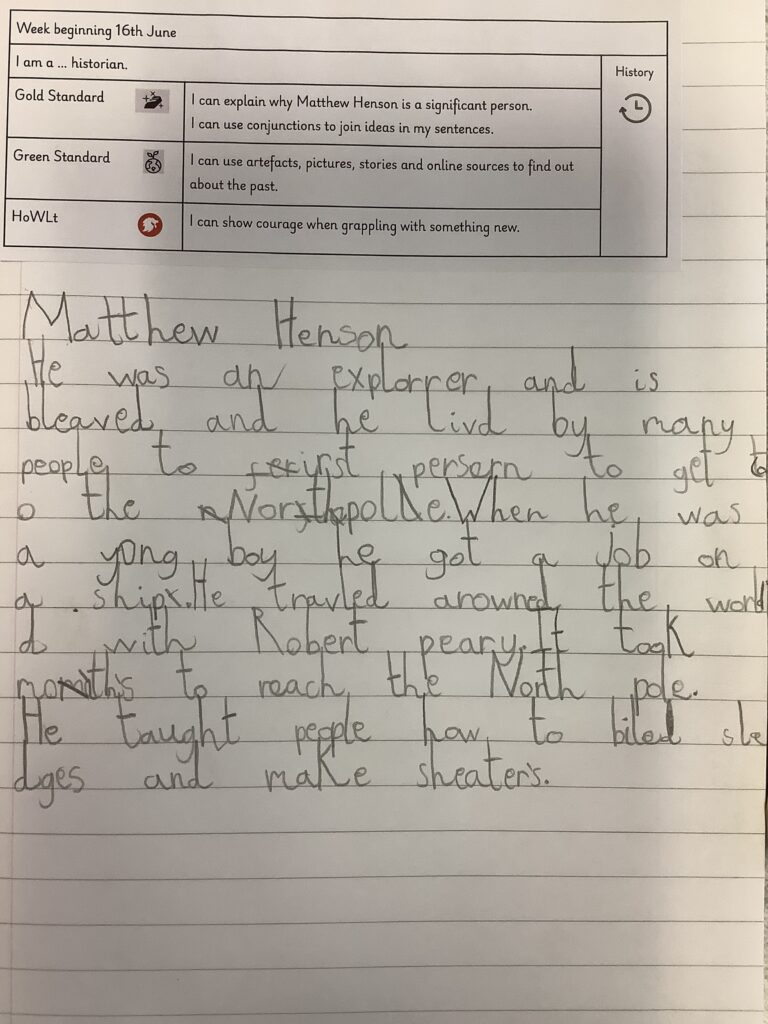 Week beginning 16th June
I am a ... historian.
History
Gold Standard
I can explain why Matthew Henson is a significant person.
I can use conjunctions to join ideas in my sentences.
Green Standard
I can use artefacts, pictures, stories and online sources to find out
about the past.
HoWLt
I can show courage when grappling with something new.
Matthew Henson
He was an explorrer, and is
bleaved and he livd by many
people to first persorn to get t
o the Northpole. When he was
a yong boy he got a job on
a ship. He travled arownd the worl
d with Robert peary. It took
months to reach the North pole.
He taught people how to biled sle
dges and make sheaters.